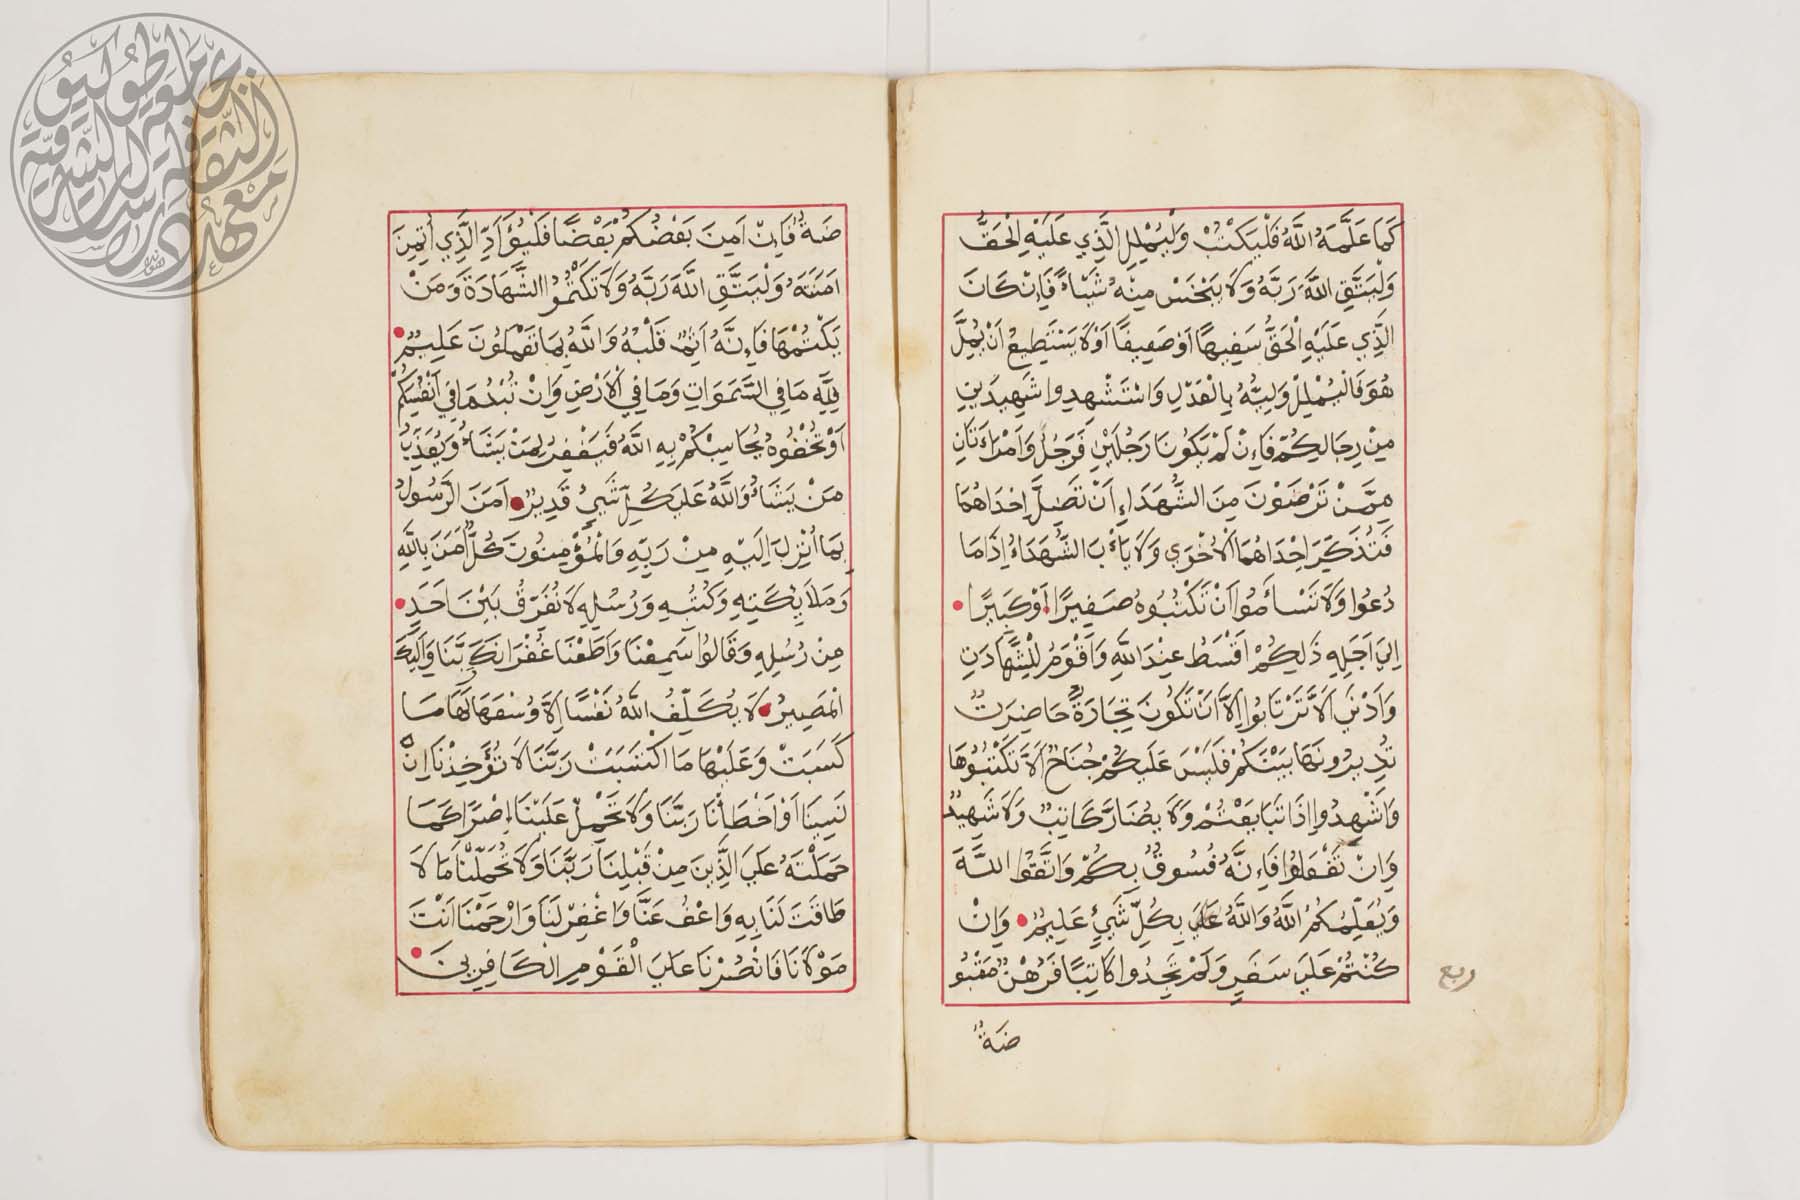 كَمَا عَلَّمَهُ اللَّهُ فَلْيَكْتُبْ وَلْيُمْلِلِ الَّذِي عَلَيْهِ الْحَقُّ
وَلْيَتَّقِ اللَّهَ رَبَّهُ وَلَا يَبْخَسْ مِنْهُ شَيْئًا فَإِنْ كَانَ
الَّذِي عَلَيْهِ الْحَقُّ سَفِيهًا أَوْ ضَعِيفًا أَوْ لَا يَسْتَطِيعُ أَنْ يُمِلَّ
هُوَ فَلْيُمْلِلْ وَلِيُّهُ بِالْعَدْلِ وَاسْتَشْهِدُوا شَهِيدَيْنِ
مِنْ رِجَالِكُمْ فَإِنْ لَمْ يَكُونَا رَجُلَيْنِ فَرَجُلٌ وَامْرَأَتَانِ
مِمَّنْ تَرْضَوْنَ مِنَ الشُّهَدَاءِ أَنْ تَضِلَّ إِحْدَاهُمَا
فَتُذَكِّرَ إِحْدَاهُمَا الْأُخْرَى وَلَا يَأْبَ الشُّهَدَاءُ إِذَا مَا
دُعُوا وَلَا تَسْأَمُوا أَنْ تَكْتُبُوهُ صَغِيرًا أَوْ كَبِيرًا
إِلَى أَجَلِهِ ذَلِكُمْ أَقْسَطُ عِنْدَ اللَّهِ وَأَقْوَمُ لِلشَّهَادَتِ
وَأَدْنَى أَلَّا تَرْتَابُوا إِلَّا أَنْ تَكُونَ تِجَارَةً حَاضِرَتٌ
تُدِيرُونَهَا بَيْنَكُمْ فَلَيْسَ عَلَيْكُمْ جُنَاحٌ أَلَّا تَكْتُبُوهَا
وَأَشْهِدُوا إِذَا تَبَايَعْتُمْ وَلَا يُضَارَّ كَاتِبٌ وَلَا شَهِيدٌ
وَإِنْ تَفْعَلُوا فَإِنَّهُ فُسُوقٌ بِكُمْ وَاتَّقُوا اللَّهَ
وَيُعَلِّمُكُمُ اللَّهُ وَاللَّهُ بِكُلِّ شَيْءٍ عَلِيمٌ وَإِنْ
كُنْتُمْ عَلَى سَفَرٍ وَلَمْ تَجِدُوا كَاتِبًا فَرُهُنٌ مَقْبُو
ضَةٌ
ربع
ضَةٌ فَإِنْ أَمِنَ بَعْضُكُمْ بَعْضًا فَلْيُؤَدِّ الَّذِي اؤْتُمِنَ
أَمَنَتَهُ وَلْيَتَّقِ اللَّهَ رَبَّهُ وَلَا تَكْتُمُوا الشَّهَادَةَ وَمَنْ
يَكْتُمْهَا فَإِنَّهُ اَثِمٌ قَلْبُهُ وَاللَّهُ بِمَا تَعْمَلُونَ عَلِيمٌ
لِلَّهِ مَا فِي السَّمَوَاتِ وَمَا فِي الْأَرْضِ وَإِنْ تُبْدُ مَا فِي أَنْفُسِكُمْ
أَوْ تُخْفُوهُ يُحَاسِبْكُمْ بِهِ اللَّهُ فَيَغْفِرُ لِمَنْ يَشَاءُ وَيُعَذِّبُ
مَنْ يَشَاءُ وَاللَّهُ عَلَى كُلِّ شَيْءٍ قَدِيرٌ اَمَنَ الرَّسُولُ
بِمَا أُنْزِلَ إِلَيْهِ مِنْ رَبِّهِ وَالْمُؤْمِنُونَ كُلٌّ اَمَنَ بِاللَّهِ
وَمَلَائِكَتِهِ وَكُتُبِهِ وَرُسُلِهِ لَا نُفَرِّقُ بَيْنَ أَحَدٍ
مِنْ رُسُلِهِ وَقَالُوا سَمِعْنَا وَأَطَعْنَا غُفْرَانَكَ رَبَّنَا وَإِلَيْكَ
الْمَصِيرُ لَا يُكَلِّفُ اللَّهُ نَفْسًا إِلَّا وُسْعَهَا لَهَا مَا
كَسَبَتْ وَعَلَيْهَا مَا اكْتَسَبَتْ رَبَّنَا لَا تُؤَخِذْنَا إِنْ
نَسِينَا أَوْ أَخْطَأْنَا رَبَّنَا وَلَا تَحْمِلْ عَلَيْنَا إِصْرًا كَمَا
حَمَلْتَهُ عَلَى الَّذِينَ مِنْ قَبْلِنَا رَبَّنَا وَلَا تُحَمِّلْنَا مَا لَا
طَاقَتَ لَنَا بِهِ وَاعْفُ عَنَّا وَاغْفِرْ لَنَا وَارْحَمْنَا أَنْتَ
مَوْلَانَا فَانْصُرْنَا عَلَى الْقَوْمِ الْكَافِرِينَ